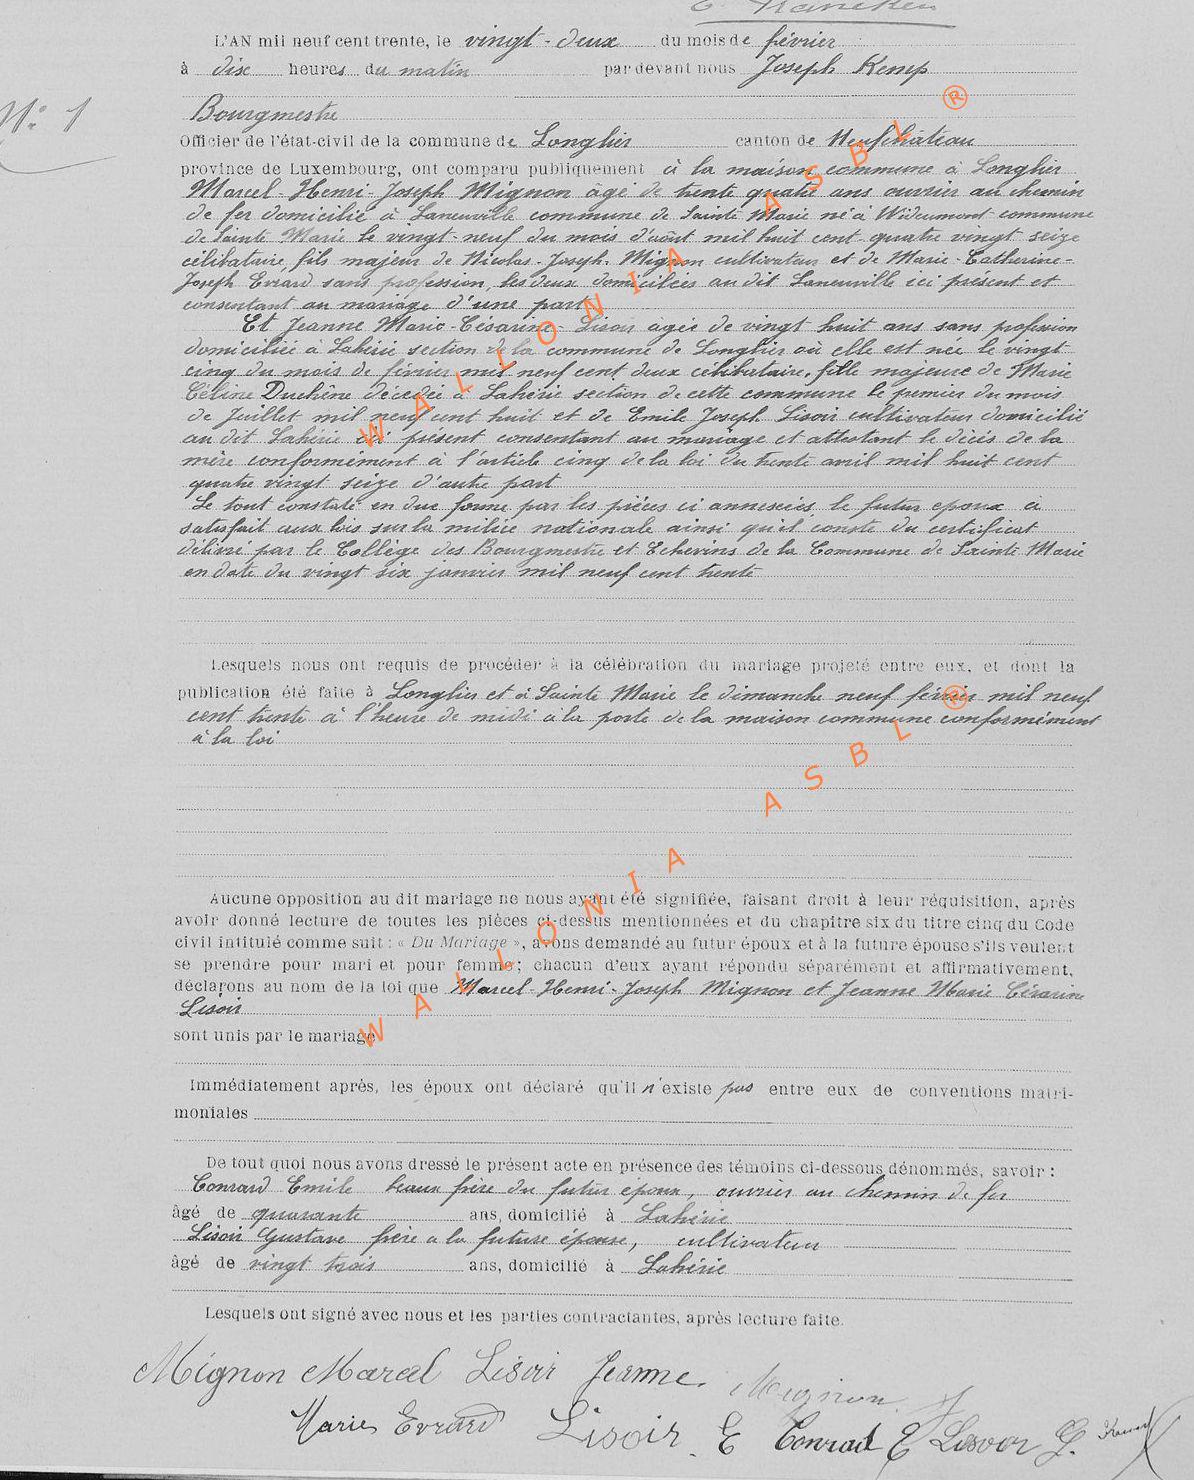 L'AN mil neuf cent trente, le vingt-deux du mois de février
à dix heures du matin par devant nous Joseph Kemp
Nº 1
Bourgmestre
Officier de l'état-civil de la commune de Longlier canton de Neufchâteau
province de Luxembourg, ont comparu publiquement à la maison commune à Longlier
Marcel-Henri-Joseph Mignon âgé de trente quatre ans ouvrier au chemin
de fer domicilié à Laneuville commune de Sainte Marie né à Wideumont commune
de Sainte Marie le vingt-neuf du mois d'août mil huit cent quatre vingt seize
célibataire, fils majeur de Nicolas-Joseph Mignon cultivateur et de Marie-Catherine-
Joseph Evrard sans profession, les deux domiciliés au dit Laneuville ici présent et
consentant au mariage d'une part
Et Jeanne Marie-Césarine Lisoir âgée de vingt huit ans sans profession
domiciliée à Lahérie section de la commune de Longlier où elle est née le vingt
cinq du mois de février mil neuf cent deux célibataire, fille majeure de Marie
Céline Duchêne décédée à Lahérie section de cette commune le premier du mois
de Juillet mil neuf cent huit et de Emile Joseph Lisoir cultivateur domicilié
au dit Lahérie ici présent consentant au mariage et attestant le décès de la
mère conformément à l'article cinq de la loi du trente avril mil huit cent
quatre vingt seize d'autre part
Le tout constaté en due forme par les pièces ci annexées, le futur époux a
satisfait aux lois sur la milice nationale ainsi qu'il conste du certificat
délivré par le Collège des Bourgmestre et Echevins de la Commune de Sainte Marie
en date du vingt six janvier mil neuf cent trente
Lesquels nous ont requis de procéder à la célébration du mariage projeté entre eux, et dont la
publication été faite à Longlier et à Sainte Marie le dimanche neuf février mil neuf
cent trente à l'heure de midi à la porte de la maison commune conformément
à la loi
Aucune opposition au dit mariage ne nous ayant été signifiée, faisant droit à leur réquisition, après
avoir donné lecture de toutes les pièces ci-dessus mentionnées et du chapitre six du titre cinq du Code
civil intitulé comme suit : « Du Mariage », avons demandé au futur époux et à la future épouse s'ils veulent
se prendre pour mari et pour femme; chacun d'eux ayant répondu séparément et affirmativement,
déclarons au nom de la loi que Marcel-Henri-Joseph Mignon et Jeanne Marie Césarine
Lisoir
sont unis par le mariage
Immédiatement après, les époux ont déclaré qu'il n'existe pas entre eux de conventions matri-
moniales
De tout quoi nous avons dressé le présent acte en présence des témoins ci-dessous dénommés, savoir :
Conrard Emile beau frère du futur époux, ouvrier au chemin de fer
âgé de quarante ans, domicilié à Lahérie
Lisoir Gustave frère à la future épouse, cultivateur
âgé de vingt trois ans, domicilié à Lahérie
Lesquels ont signé avec nous et les parties contractantes, après lecture faite.
Mignon Marcel Lisoir Jeanne. Mignon. J
Marie Evrard Lisoir. E Conrad E Lisoir G.
WALLONIA ASBL ®
WALLONIA ASBL ®